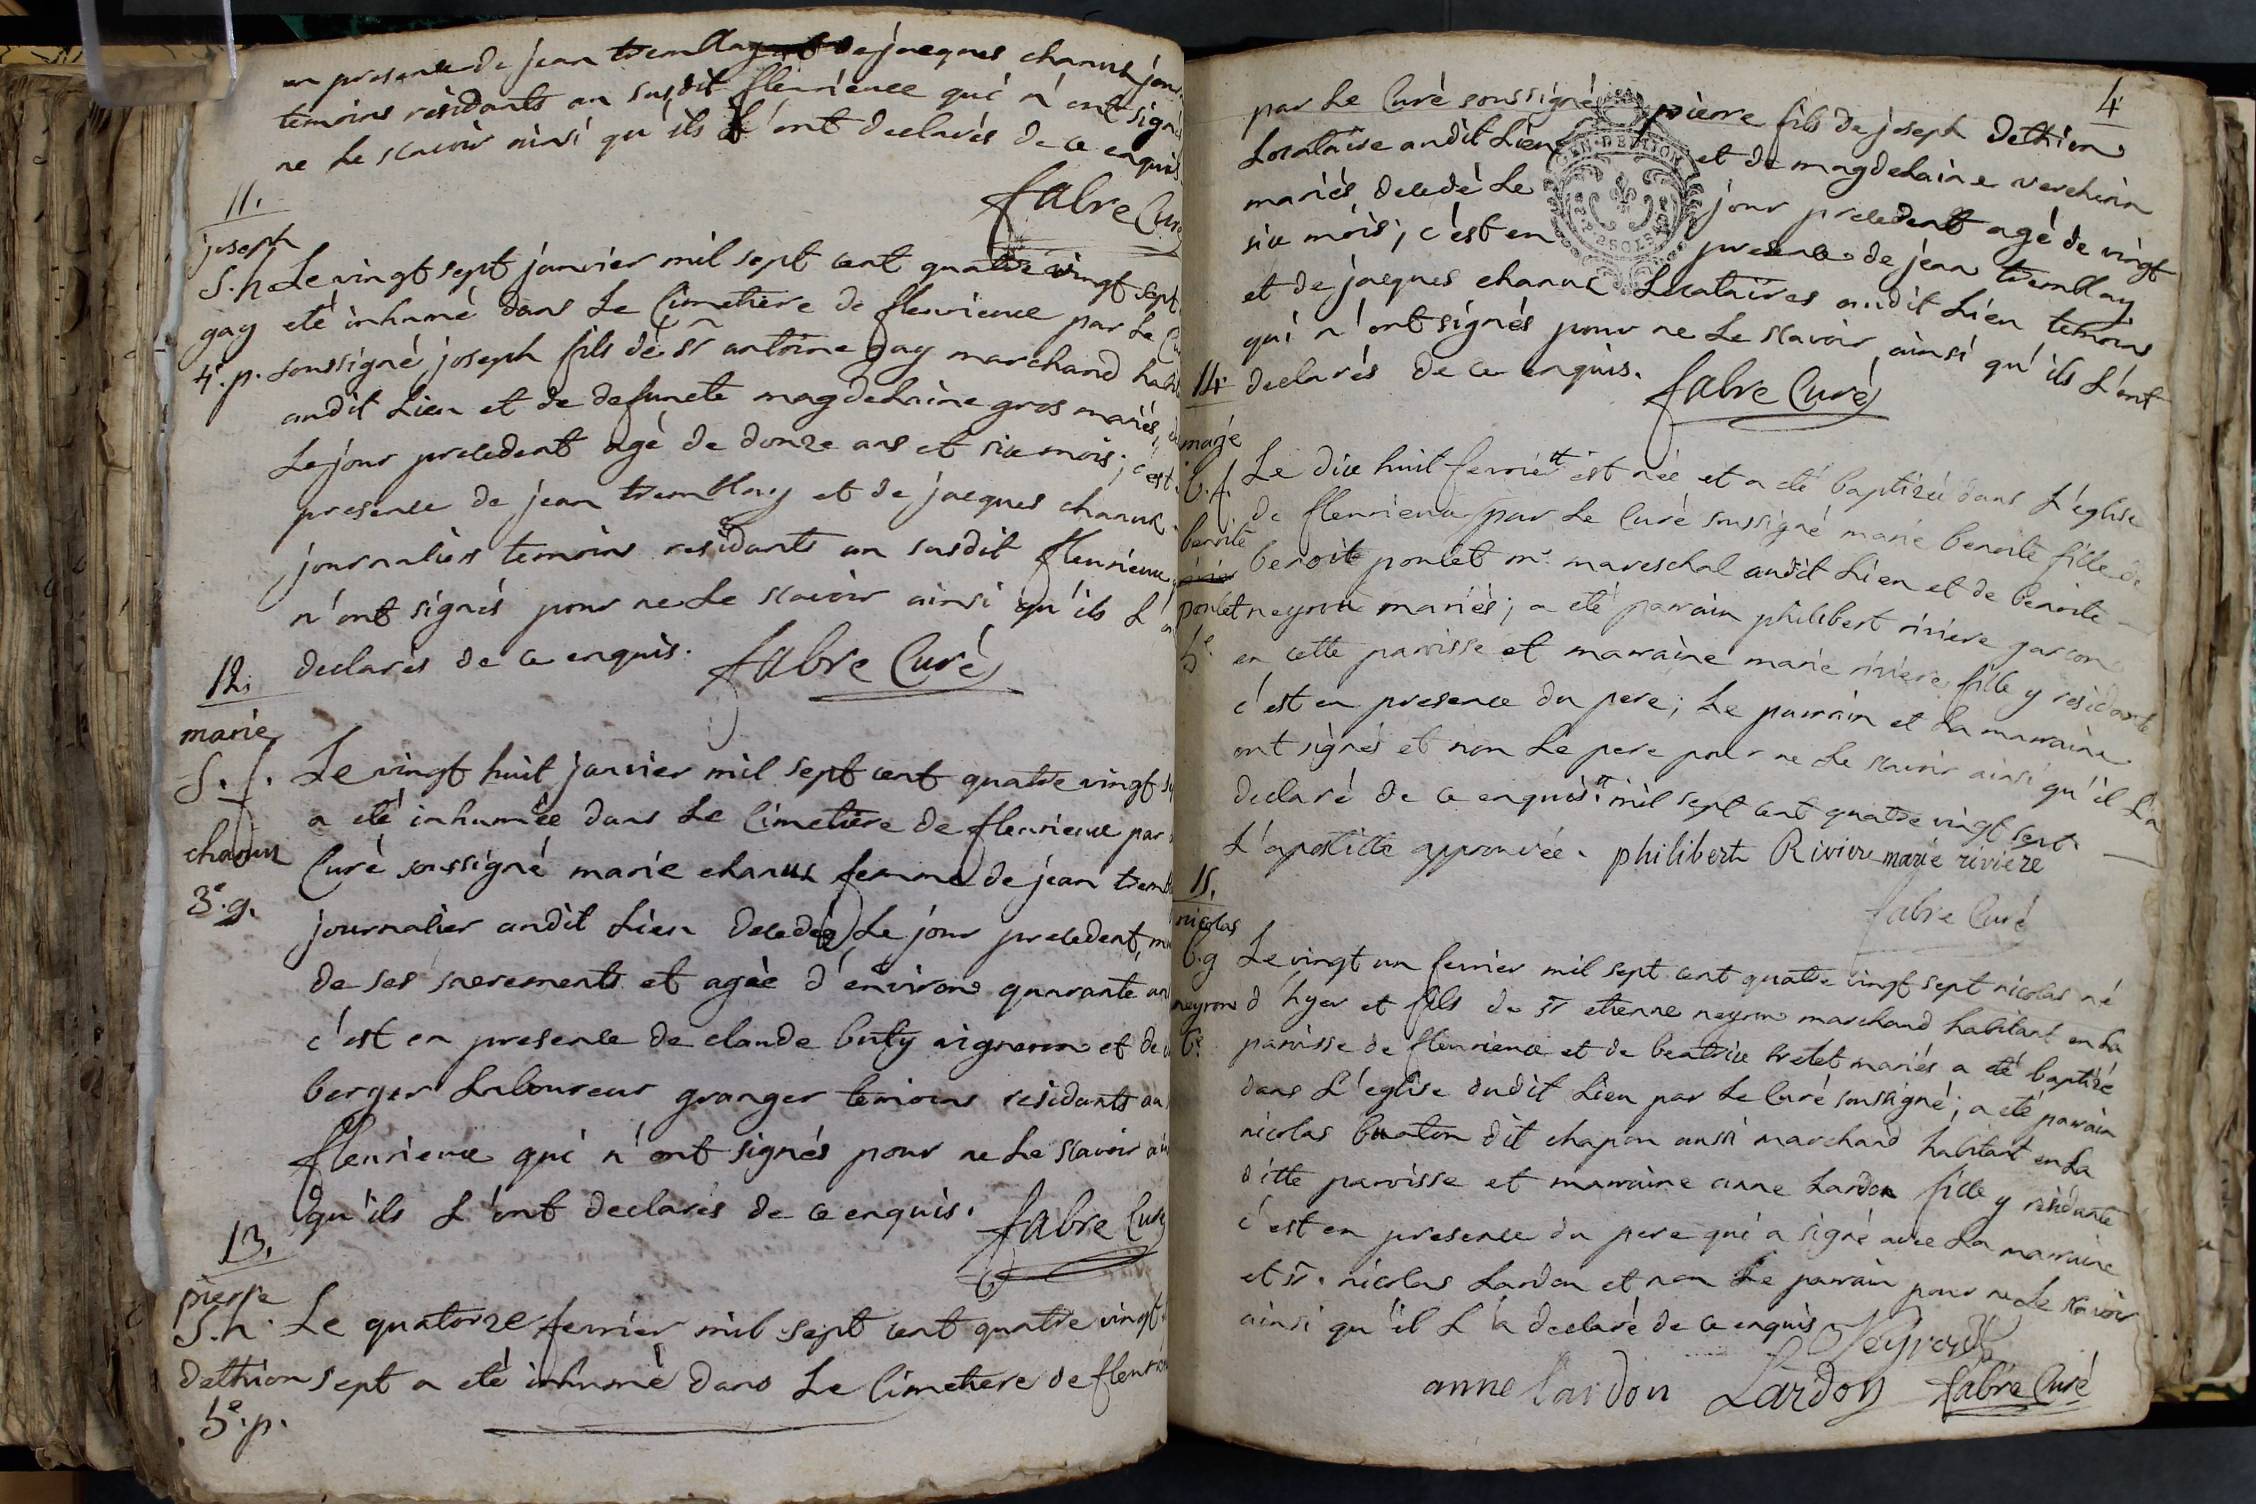 en presence de jean tremblay et de jacques chanux jour
temoins résidants au susdit fleurieux qui n'ont signé
ne le scavoir ainsi qu'ils l'ont declarés de ce enquis
fabre Curé
11.
joseph
S. h.
gay
4e. p.
Le vingt sept janvier mil sept cent quatre vingt sept
eté inhumé dans le Cimetière de fleurieux par le Cu
soussigné joseph fils de sr antoine gay marchand habit
audit Lieu et de defuncte magdelaine gros mariés,
Le jour precedent agé de douze ans et six mois; c'est
presence de jean tremblay et de jacques chanux
journaliers temoins residants au susdit fleurieux
n'ont signés pour ne le scavoir ainsi qu'ils l'
declarés de ce enquis. fabre Curé
12.
marie
S. f.
chanux
3e. g.
Le vingt huit janvier mil sept cent quatre vingt
a eté inhumée dans le Cimetière de fleurieux par
Curé soussigné marie chanux femme de jean trem
journalier audit Lieu decedée Le jour precedent,
de ses sacrements et agée d'environ quarante an
c'est en presence de claude buty vigneron et de
berger Laboureur granger temoins residants au
fleurieux qui n'ont signés pour ne le scavoir
qu'ils l'ont declarés de ce enquis. fabre Curé
13.
pierre
S. h.
dethion
5e. p.
Le quatorze fevrier mil sept cent quatre vingt
sept a eté inhumé dans le Cimetiere de fleur
4
par le Curé soussigné pierre fils de joseph dethion
Locataire audit Lieu et de magdelaine vercherin
mariés, decedé le jour precedent agé de vingt
six mois; c'est en presence de jean tremblay
et de jacques chanux Locataires audit Lieu temoins
qui n'ont signés pour ne le scavoir ainsi qu'ils l'ont
declarés de ce enquis. fabre Curé
GEN. DE LYON
14
marie
b. f.
benoite
poulet
5e
Le dix huit fevrier est née et a eté baptizée dans l'église
de fleurieux par le Curé soussigné marie benoite fille de
benoit poulet me. mareschal audit Lieu et de benoite
neyroud mariés; a eté parrain philibert riviere garçon
en cette paroisse et marraine marie riviere fille y residante
c'est en presence du pere; le parrain et la marraine
ont signés et non le pere pour ne le scavoir ainsi qu'il l'a
declaré de ce enquis. mil sept cent quatre vingt sept.
L'apostille approuvée. philibert Riviere marie riviere
fabre Curé
15.
nicolas
b. g
neyron
6e.
Le vingt un fevrier mil sept cent quatre vingt sept nicolas né
d'hyer et fils de sr etienne neyron marchand habitant en la
paroisse de fleurieux et de beatrix bretet mariés a eté baptizé
dans l'eglise dudit Lieu par le Curé soussigné; a eté parrain
nicolas buaton dit chapon aussi marchand habitant en la
ditte paroisse et marraine anne Lardon fille y residante
c'est en presence du pere qui a signé avec la marraine
et sr. nicolas Lardon et non le parrain pour ne le scavoir
ainsi qu'il l'a declaré de ce enquis Neyron
anne lardon Lardon fabre Curé